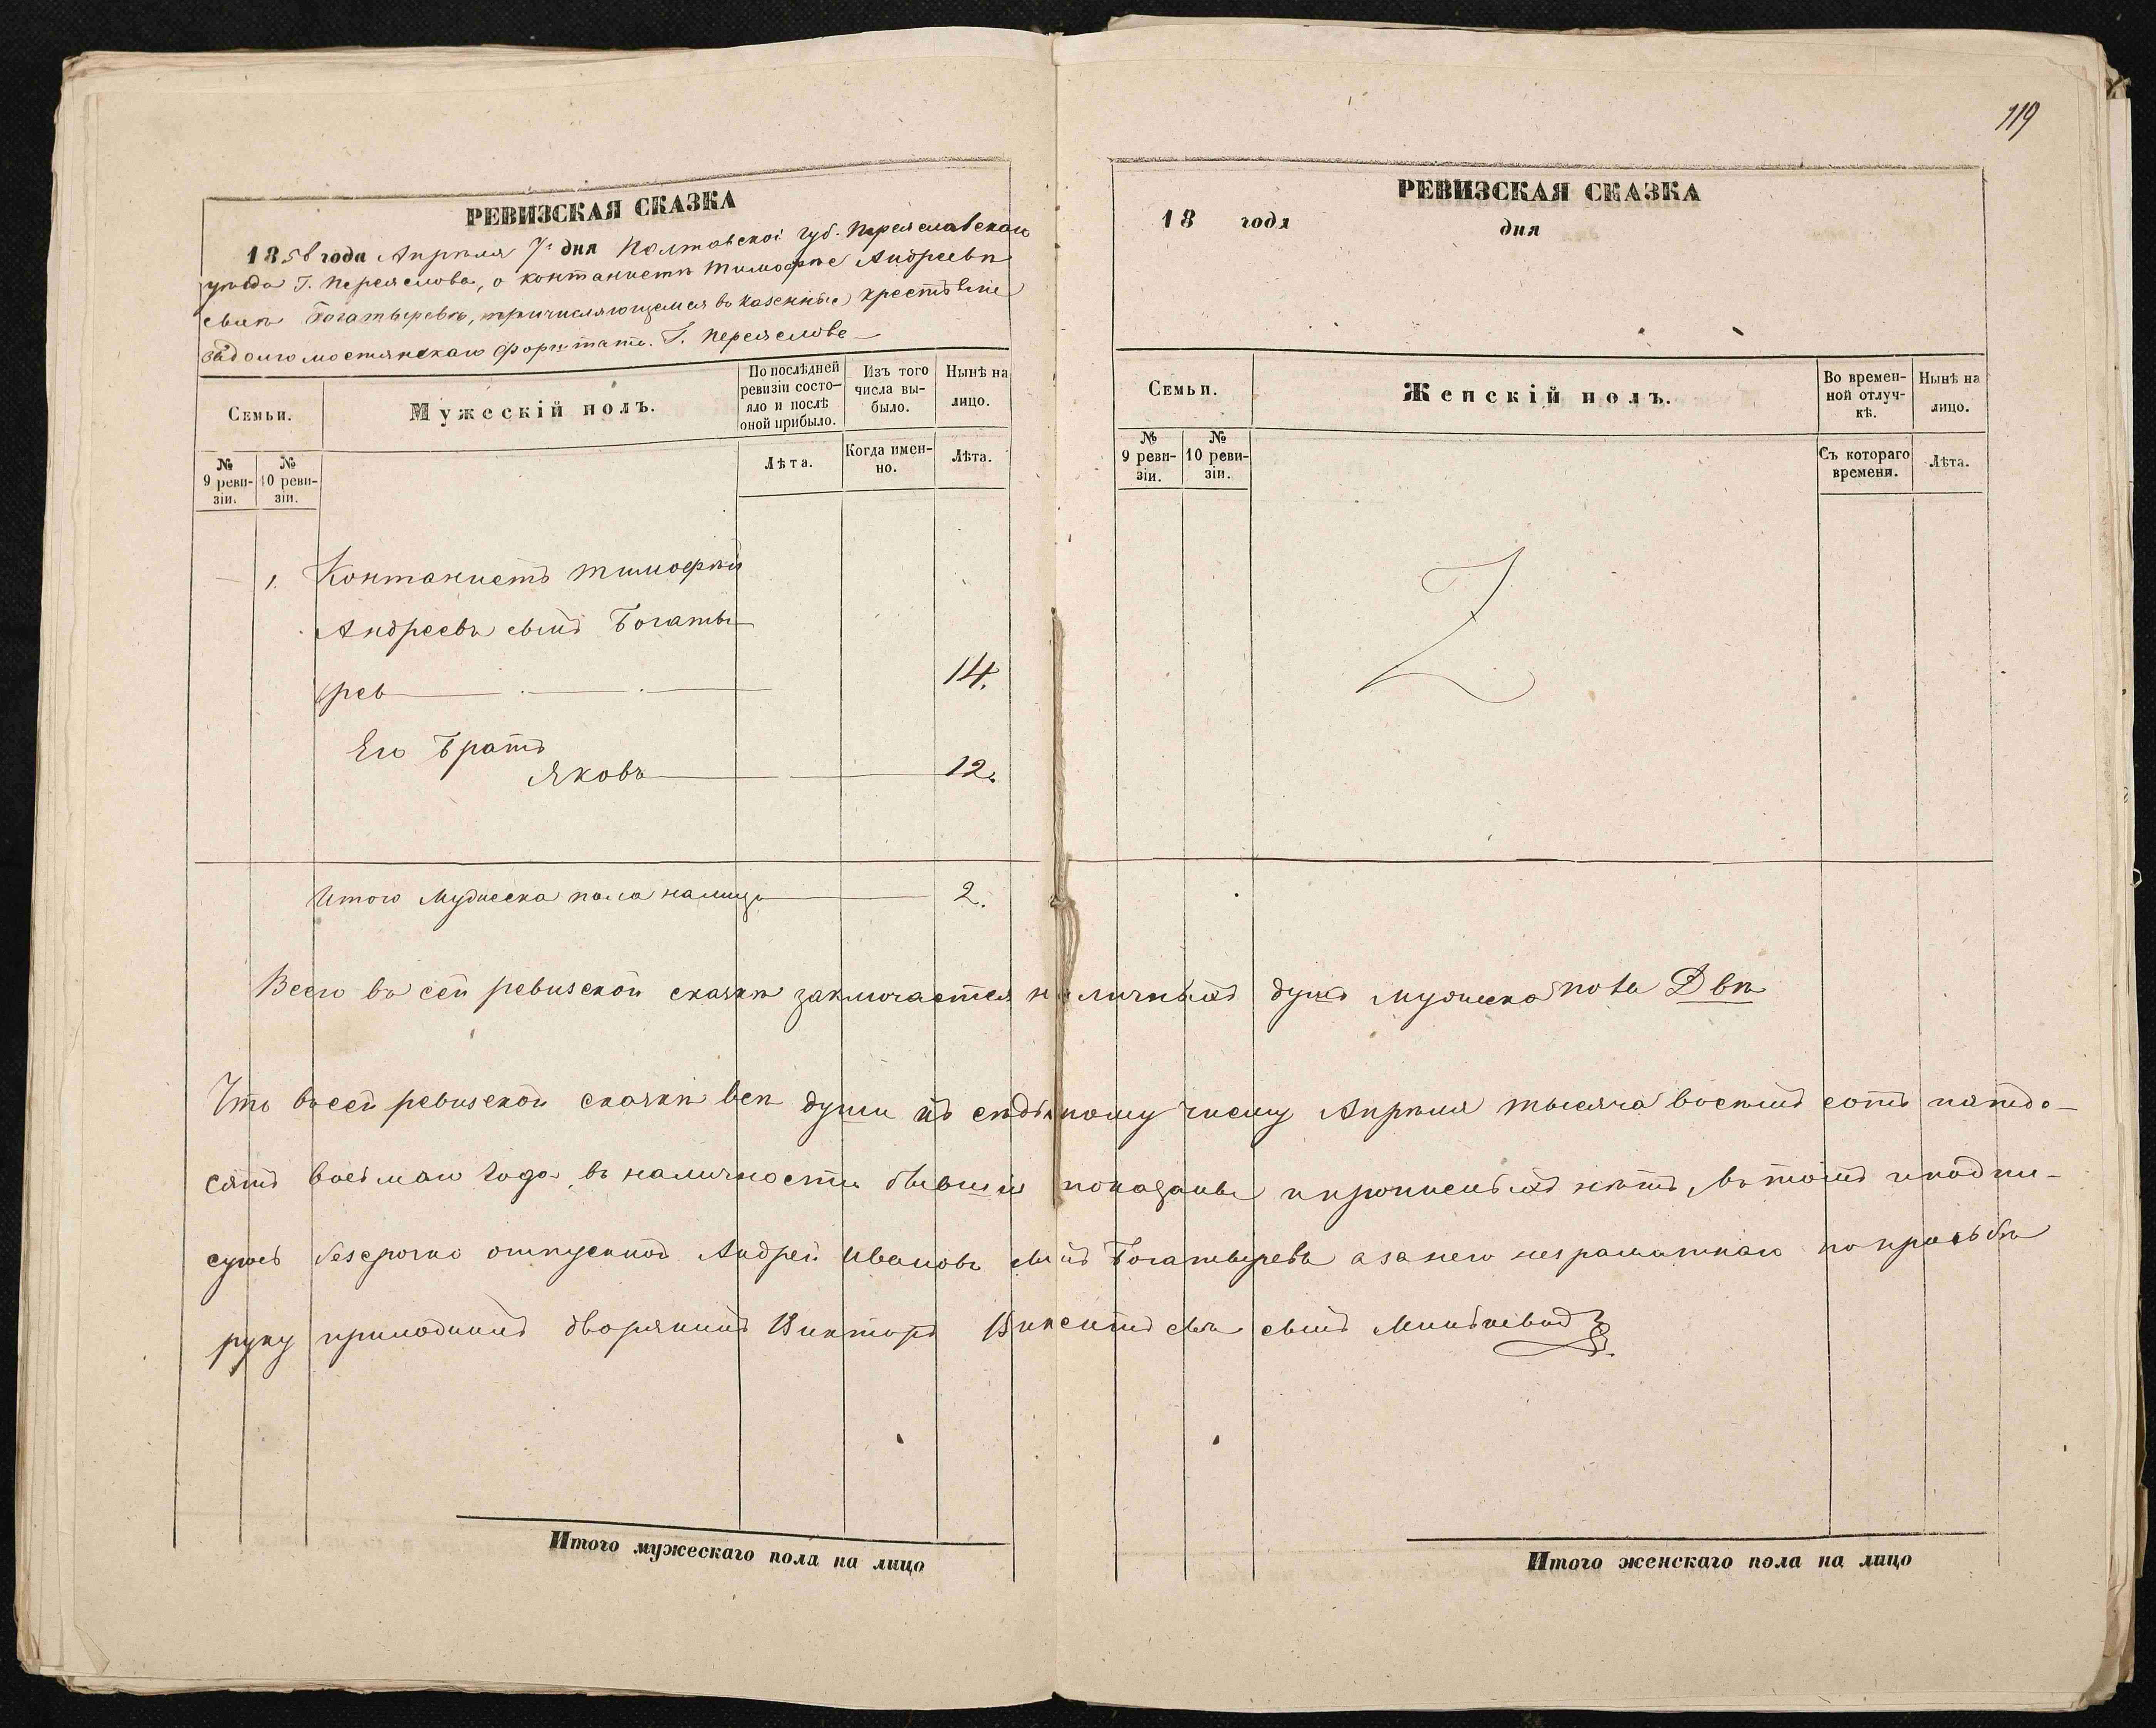 119
РЕВИЗСКАЯ СКАЗКА
1858 года Апрѣля 7. дня Полтавской губ. Переяславскаго
уѣзда Г. Переяслова, о контанистѣ Тимофѣе Андреевѣ
сынѣ Богатыревѣ, причисляющемся въ казенные крестьяне
Г. Переяслове
Семьи.
Мужескій полъ.
По послѣдней ревизіи состояло и послѣ оной прибыло.
Изъ того числа выбыло.
Нынѣ на лицо.
№ 9 ревизіи.
№ 10 ревизіи.
Лѣта.
Когда именно.
Лѣта.
1. Контанистъ Тимофѣй
Андреевъ сынъ Богаты-
рев 14.
Его Братъ
Яковъ 12.
Итого Мужеска пола налицо 2.
РЕВИЗСКАЯ СКАЗКА
18 года дня
Семьи.
Женскій полъ.
Во временной отлучкѣ.
Нынѣ на лицо.
№ 9 ревизіи.
№ 10 ревизіи.
Съ котораго времени.
Лѣта.
Всего въ сей ревизской сказкѣ заключается наличныхъ душъ мужеска пола Двѣ
Что въ сей ревизской сказкѣ всѣ души къ седьмому числу Апрѣля тысяча восемъ сотъ пятде-
сятъ восьмаго года въ наличности бывшія показаны и прописныхъ нѣтъ, въ томъ и подпи-
суюсь безсрочно отпускной Андрей Ивановъ сынъ Богатыревъ а за него неграматнаго по прозьбѣ
руку приложилъ дворянинъ Викторъ Викентьевъ сынъ
Итого мужескаго пола на лицо
Итого женскаго пола на лицо